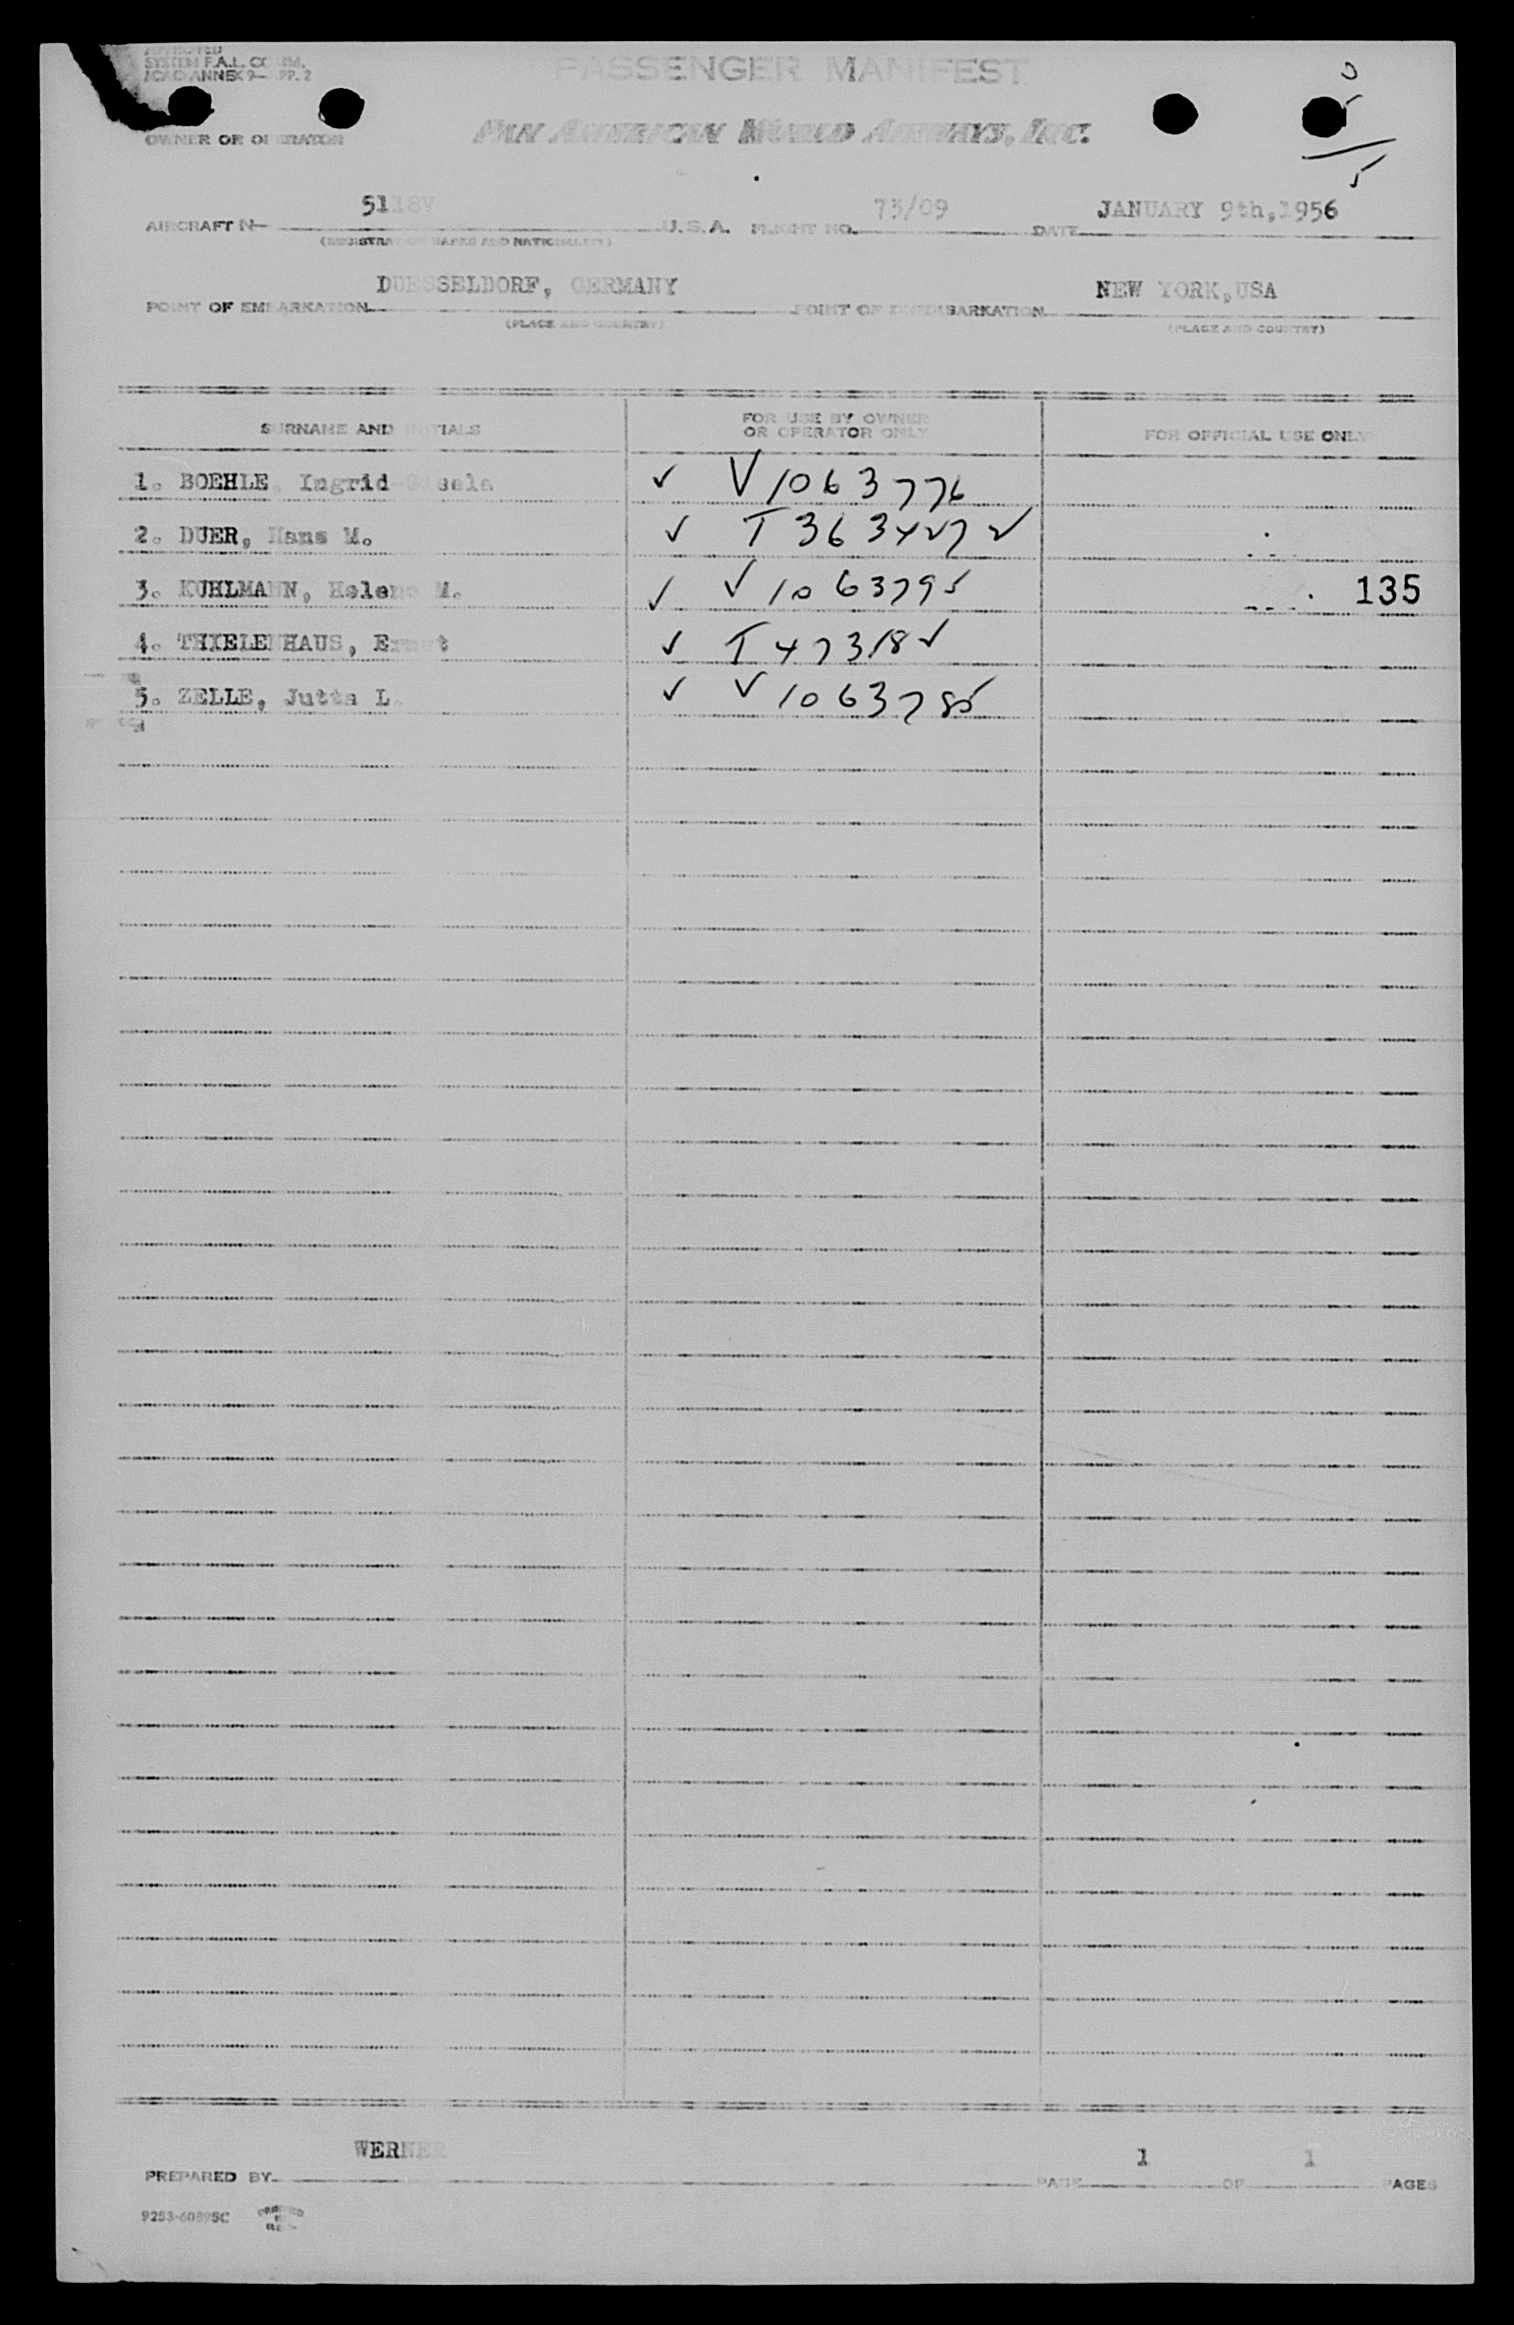 APPROVED
SYSTEM F.A.L. COMM.
ICAO ANNEX 9—APP. 2
PASSENGER MANIFEST
0
5
5
OWNER OR OPERATOR
PAN AMERICAN WORLD AIRWAYS, INC.
AIRCRAFT N— 5118V U.S.A. FLIGHT NO. 73/09 DATE JANUARY 9th,1956
(REGISTRATION MARKS AND NATIONALITY)
POINT OF EMBARKATION DUESSELDORF, GERMANY POINT OF DISEMBARKATION NEW YORK,USA
(PLACE AND COUNTRY) (PLACE AND COUNTRY)
SURNAME AND INITIALS FOR USE BY OWNER OR OPERATOR ONLY FOR OFFICIAL USE ONLY
1. BOEHLE, Ingrid Gisela ✓ V1063776
2. DUER, Hans M. ✓ T363427 ✓
3. KUHLMANN, Helene M. ✓ V1063795 135
4. THIELENHAUS, Ernst ✓ T47318 ✓
5. ZELLE, Jutta L. ✓ V1063785
PREPARED BY WERNER PAGE 1 OF 1 PAGES
9253-60895C PRINTED IN U.S.A.